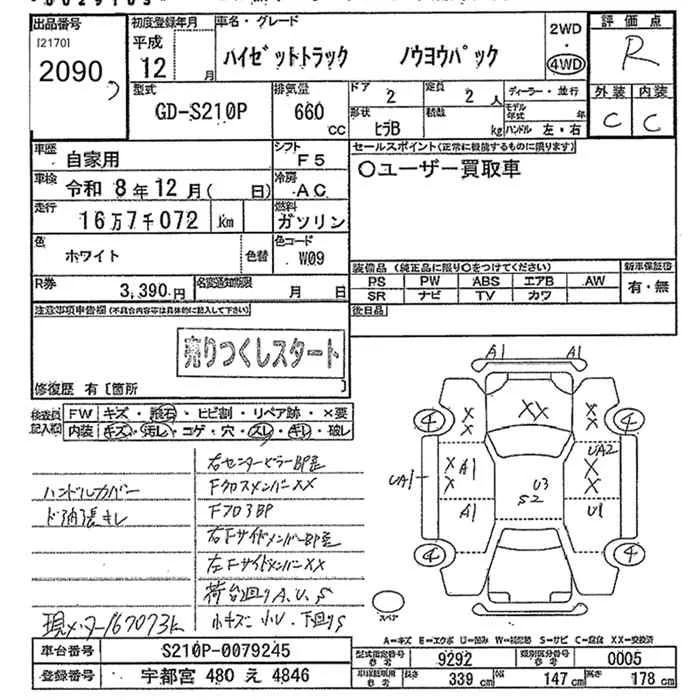 出品番号
[2170]
2090
初度登録年月
平成
12 月
車名・グレード
ハイゼットトラック ノウヨウパック
2WD
・
4WD
評価点
R
型式
GD-S210P
排気量
660
CC
ドア
2
定員
2 人
ディーラー・並行
モデル年式 年
形状
ヒラB
積数
kg
ハンドル 左・右
外装
内装
C
C
車歴
自家用
シフト
F5
車検
令和 8年 12月( 日)
冷房
AC
走行
16万7千072 km
燃料
ガソリン
色
ホワイト
色替
色コード
W09
R券
3,390円
名変通知期限
月 日
セールスポイント(正常に機能するものに限ります)
○ユーザー買取車
装備品(純正品に限り○をつけてください)
PS PW ABS エアB AW
SR ナビ TV カワ
新車保証書
有・無
後日品
注意事項申告欄(不具合内容等は具体的に記入して下さい)
売りつくしスタート
修復歴 有[箇所 ]
検査員記入欄
FW キズ・飛石・ヒビ割・リペア跡・×要
内装 キズ・汚レ・コゲ・穴・スレ・キレ・破レ
ハンドルカバー
右センターピラーBP歪
FクロスメンバーXX
Fフロア BP
右FサイドメンバーBP歪
左FサイドメンバーXX
荷台回りA、U、S
小キズ 小U、下回りS
現メーター167073k
A1
A1
XX
X
X
X
X
4
4
UA1
X
A1
X
A1
U3
S2
UA2
X
X
U1
4
4
スペア
A=キズ E=エクボ U=凹み W=補修跡 S=サビ C=腐食 XX=交換済
車台番号
S210P-0079245
型式指定番号
参考
9292
類別区分番号
参考
0005
登録番号
宇都宮 480 え 4846
参考
339 cm
幅
147 cm
高さ
178 cm